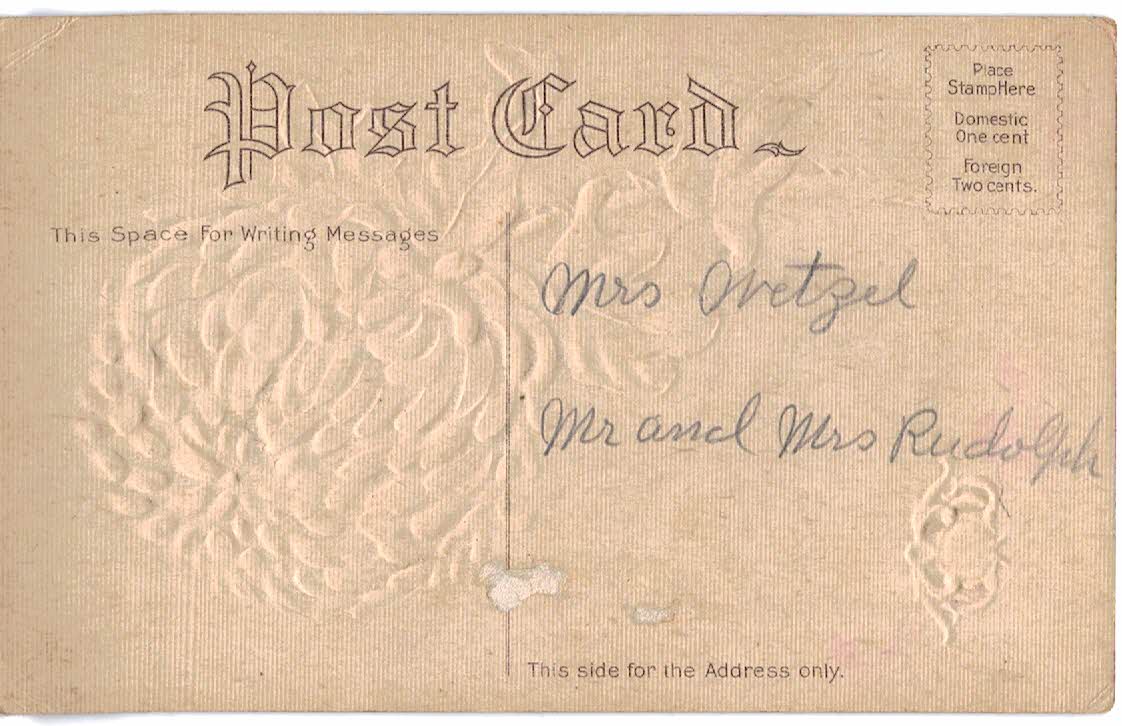 Post Card
Place
Stamp Here
Domestic
One cent
Foreign
Two cents.
This Space For Writing Messages
Mrs Wetzel
Mr and Mrs Rudolph
This side for the Address only.